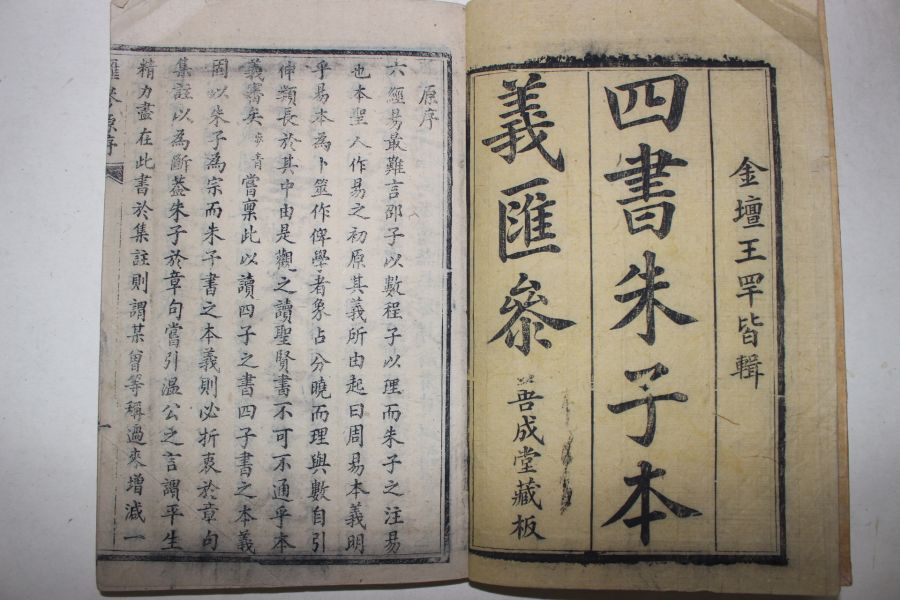 金壇王罕皆輯
四書朱子本
義匯參
善成堂藏板
原序
六經易最難言邵子以數程子以理而朱子之注易
也本聖人作易之初原其義所由起曰周易本義明
乎易本為卜筮作俾學者象占分曉而理與數自引
伸類長於其中由是觀之讀聖賢書不可不通乎本
義審矣步青嘗稟此以讀四子之書四子書之本義
固以朱子為宗而朱子書之本義則必折衷於章句
集註以為斷葢朱子於章句嘗引溫公之言謂平生
精力盡在此書於集註則謂某曾等稱過來增減一
匯參原序
一